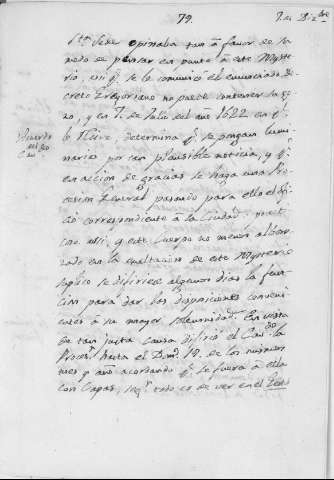 79.
Sta. Sede opinaba tan á favor de su
modo de pensar en punto á este Myste-
rio, asi q.e se le comunicó el enunciado De-
creto Gregoriano no puede contener su go-
zo, y en 7. de Julio del año 1622 en q.e
lo tubo, determina q.e se pongan lumi-
narias por tan plausible noticia, y q.e
en accion de gracias se haga una Pro-
cesion General pasando para ello el ofi-
cio correspondiente á la Ciudad; practi-
case asi, y este Cuerpo no menos alboro-
zado en la exaltacion de este Mysterio
suplico se difiriese algunos dias la fun-
cion para dar las disposiciones conveni-
entes á su mayor solemnidad. En vista
de tan justa causa difirió el Cav.do la
Proces.n hasta el Dom.o 19. de los mismos
mes y año acordando q.e se fuera á ella
con Capas, seg.n todo es de ver en el
Acuerdo
del
Cav.